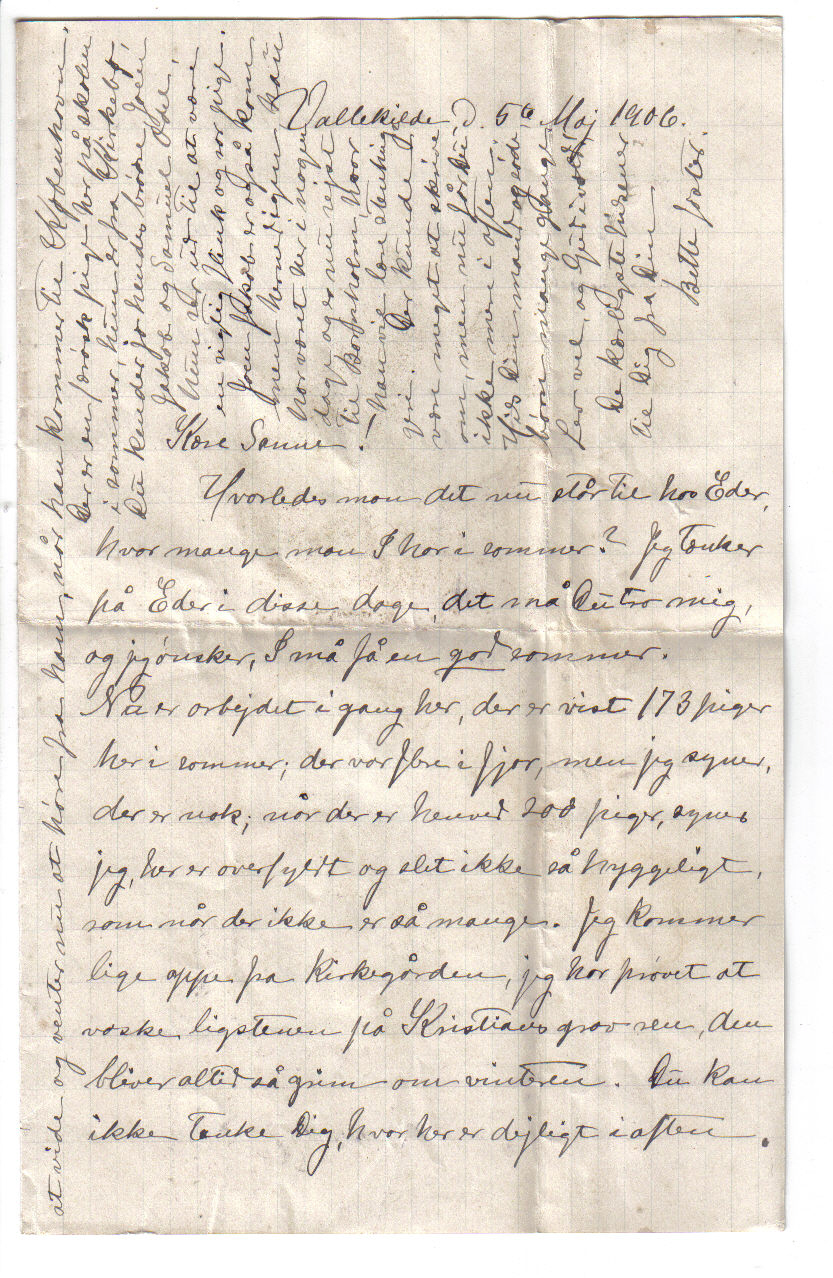 Vallekilde d. 5te Maj 1906.
Kære Sanne!
Hvorledes mon det nu står til hos Eder,
hvor mange mon I har i sommer? Jeg tænker
på Eder i disse dage, det må Du tro mig,
og jeg ønsker, I må få en god sommer.
Nu er arbejdet i gang her, der er vist 173 piger
her i sommer; der var flere i fjor, men jeg synes,
der er nok; når der er henved 200 piger, synes
jeg, her er overfyldt og slet ikke så hyggeligt,
som når der ikke er så mange. Jeg kommer
lige oppe fra Kirkegården, jeg har prøvet at
vaske ligstenen på Kristians grav ren, den
bliver altid så grim om vinteren. Du kan
ikke tænke Dig, hvor her er dejligt i aften.
at vide og venter nu at høre fra ham, når han kommer til København.
Der er en færøsk pige her på skolen
i sommer, hun er fra Kirkebø,
Du kender jo hendes brødre Joen
Jakob og Samuel
Hun ser ud til at være
en rigtig flink og rar pige.
Joen Jakob er også kom
men hjem igen han
har været her i nogen
dage og er nu rejst
til Bornholm, hvor
han vil lære
Der kunde
være meget at skrive
om, men nu får Du
ikke mere i aften.
Hils Din mand og søde
børn mange gange.
Lev vel og Gud i vold!
De kærligste hilsener
til Dig fra Din
Bette søster.